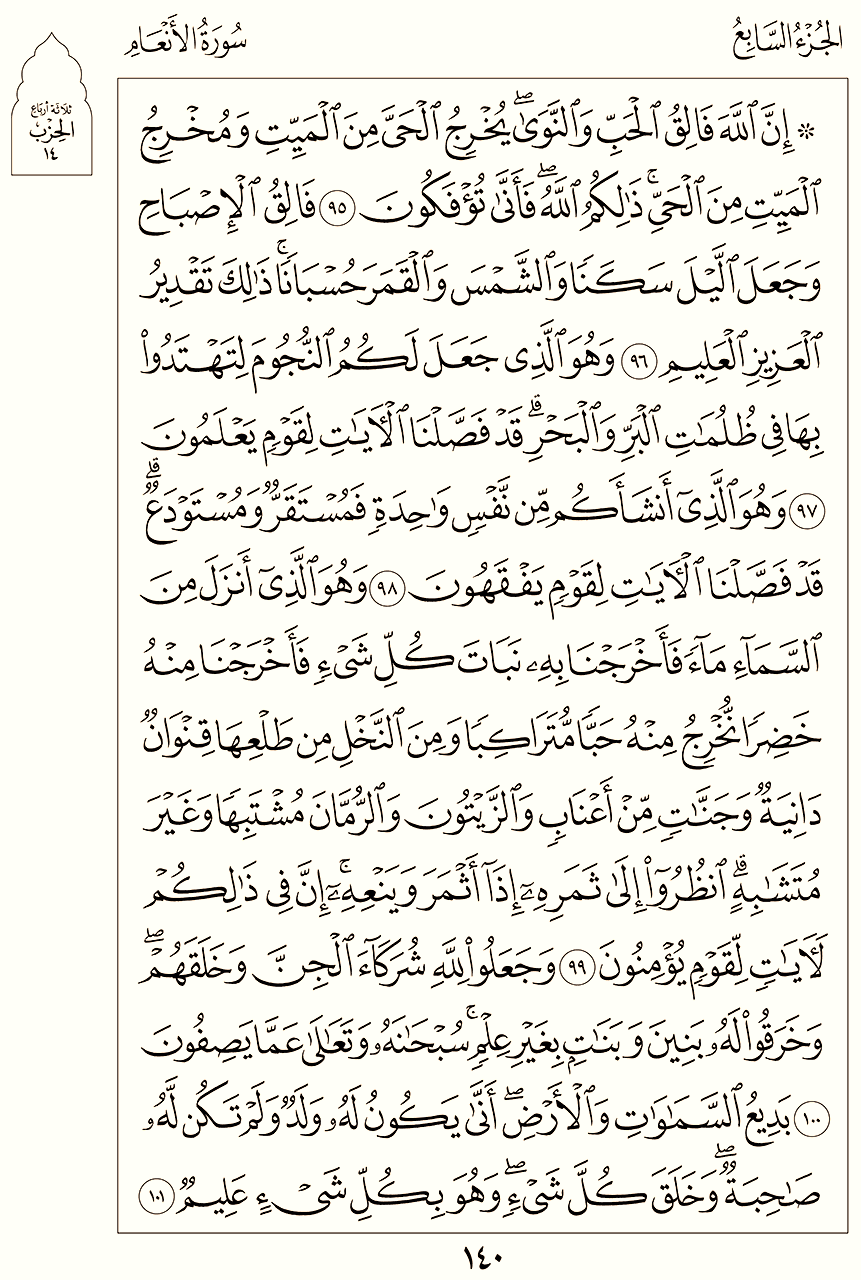 الجُزْءُ السَّابِعُ
سُورَةُ الأَنْعَامِ
ثلاثة أرباع
الحِزْبُ
١٤
۞ إِنَّ ٱللَّهَ فَالِقُ ٱلْحَبِّ وَٱلنَّوَىٰۖ يُخْرِجُ ٱلْحَىَّ مِنَ ٱلْمَيِّتِ وَمُخْرِجُ
ٱلْمَيِّتِ مِنَ ٱلْحَىِّۚ ذَٰلِكُمُ ٱللَّهُۖ فَأَنَّىٰ تُؤْفَكُونَ ٩٥ فَالِقُ ٱلْإِصْبَاحِ
وَجَعَلَ ٱلَّيْلَ سَكَنًا وَٱلشَّمْسَ وَٱلْقَمَرَ حُسْبَانًاۚ ذَٰلِكَ تَقْدِيرُ
ٱلْعَزِيزِ ٱلْعَلِيمِ ٩٦ وَهُوَ ٱلَّذِى جَعَلَ لَكُمُ ٱلنُّجُومَ لِتَهْتَدُوا۟
بِهَا فِى ظُلُمَٰتِ ٱلْبَرِّ وَٱلْبَحْرِۗ قَدْ فَصَّلْنَا ٱلْءَايَٰتِ لِقَوْمٍ يَعْلَمُونَ
٩٧ وَهُوَ ٱلَّذِىٓ أَنشَأَكُم مِّن نَّفْسٍ وَٰحِدَةٍ فَمُسْتَقَرٌّ وَمُسْتَوْدَعٌۗ
قَدْ فَصَّلْنَا ٱلْءَايَٰتِ لِقَوْمٍ يَفْقَهُونَ ٩٨ وَهُوَ ٱلَّذِىٓ أَنزَلَ مِنَ
ٱلسَّمَآءِ مَآءً فَأَخْرَجْنَا بِهِۦ نَبَاتَ كُلِّ شَىْءٍ فَأَخْرَجْنَا مِنْهُ
خَضِرًا نُّخْرِجُ مِنْهُ حَبًّا مُّتَرَاكِبًا وَمِنَ ٱلنَّخْلِ مِن طَلْعِهَا قِنْوَانٌ
دَانِيَةٌ وَجَنَّٰتٍ مِّنْ أَعْنَابٍ وَٱلزَّيْتُونَ وَٱلرُّمَّانَ مُشْتَبِهًا وَغَيْرَ
مُتَشَٰبِهٍۗ ٱنظُرُوٓا۟ إِلَىٰ ثَمَرِهِۦٓ إِذَآ أَثْمَرَ وَيَنْعِهِۦٓۚ إِنَّ فِى ذَٰلِكُمْ
لَءَايَٰتٍ لِّقَوْمٍ يُؤْمِنُونَ ٩٩ وَجَعَلُوا۟ لِلَّهِ شُرَكَآءَ ٱلْجِنَّ وَخَلَقَهُمْۖ
وَخَرَقُوا۟ لَهُۥ بَنِينَ وَبَنَٰتٍۭ بِغَيْرِ عِلْمٍۚ سُبْحَٰنَهُۥ وَتَعَٰلَىٰ عَمَّا يَصِفُونَ
١٠٠ بَدِيعُ ٱلسَّمَٰوَٰتِ وَٱلْأَرْضِۖ أَنَّىٰ يَكُونُ لَهُۥ وَلَدٌ وَلَمْ تَكُن لَّهُۥ
صَٰحِبَةٌۖ وَخَلَقَ كُلَّ شَىْءٍۖ وَهُوَ بِكُلِّ شَىْءٍ عَلِيمٌ ١٠١
١٤٠